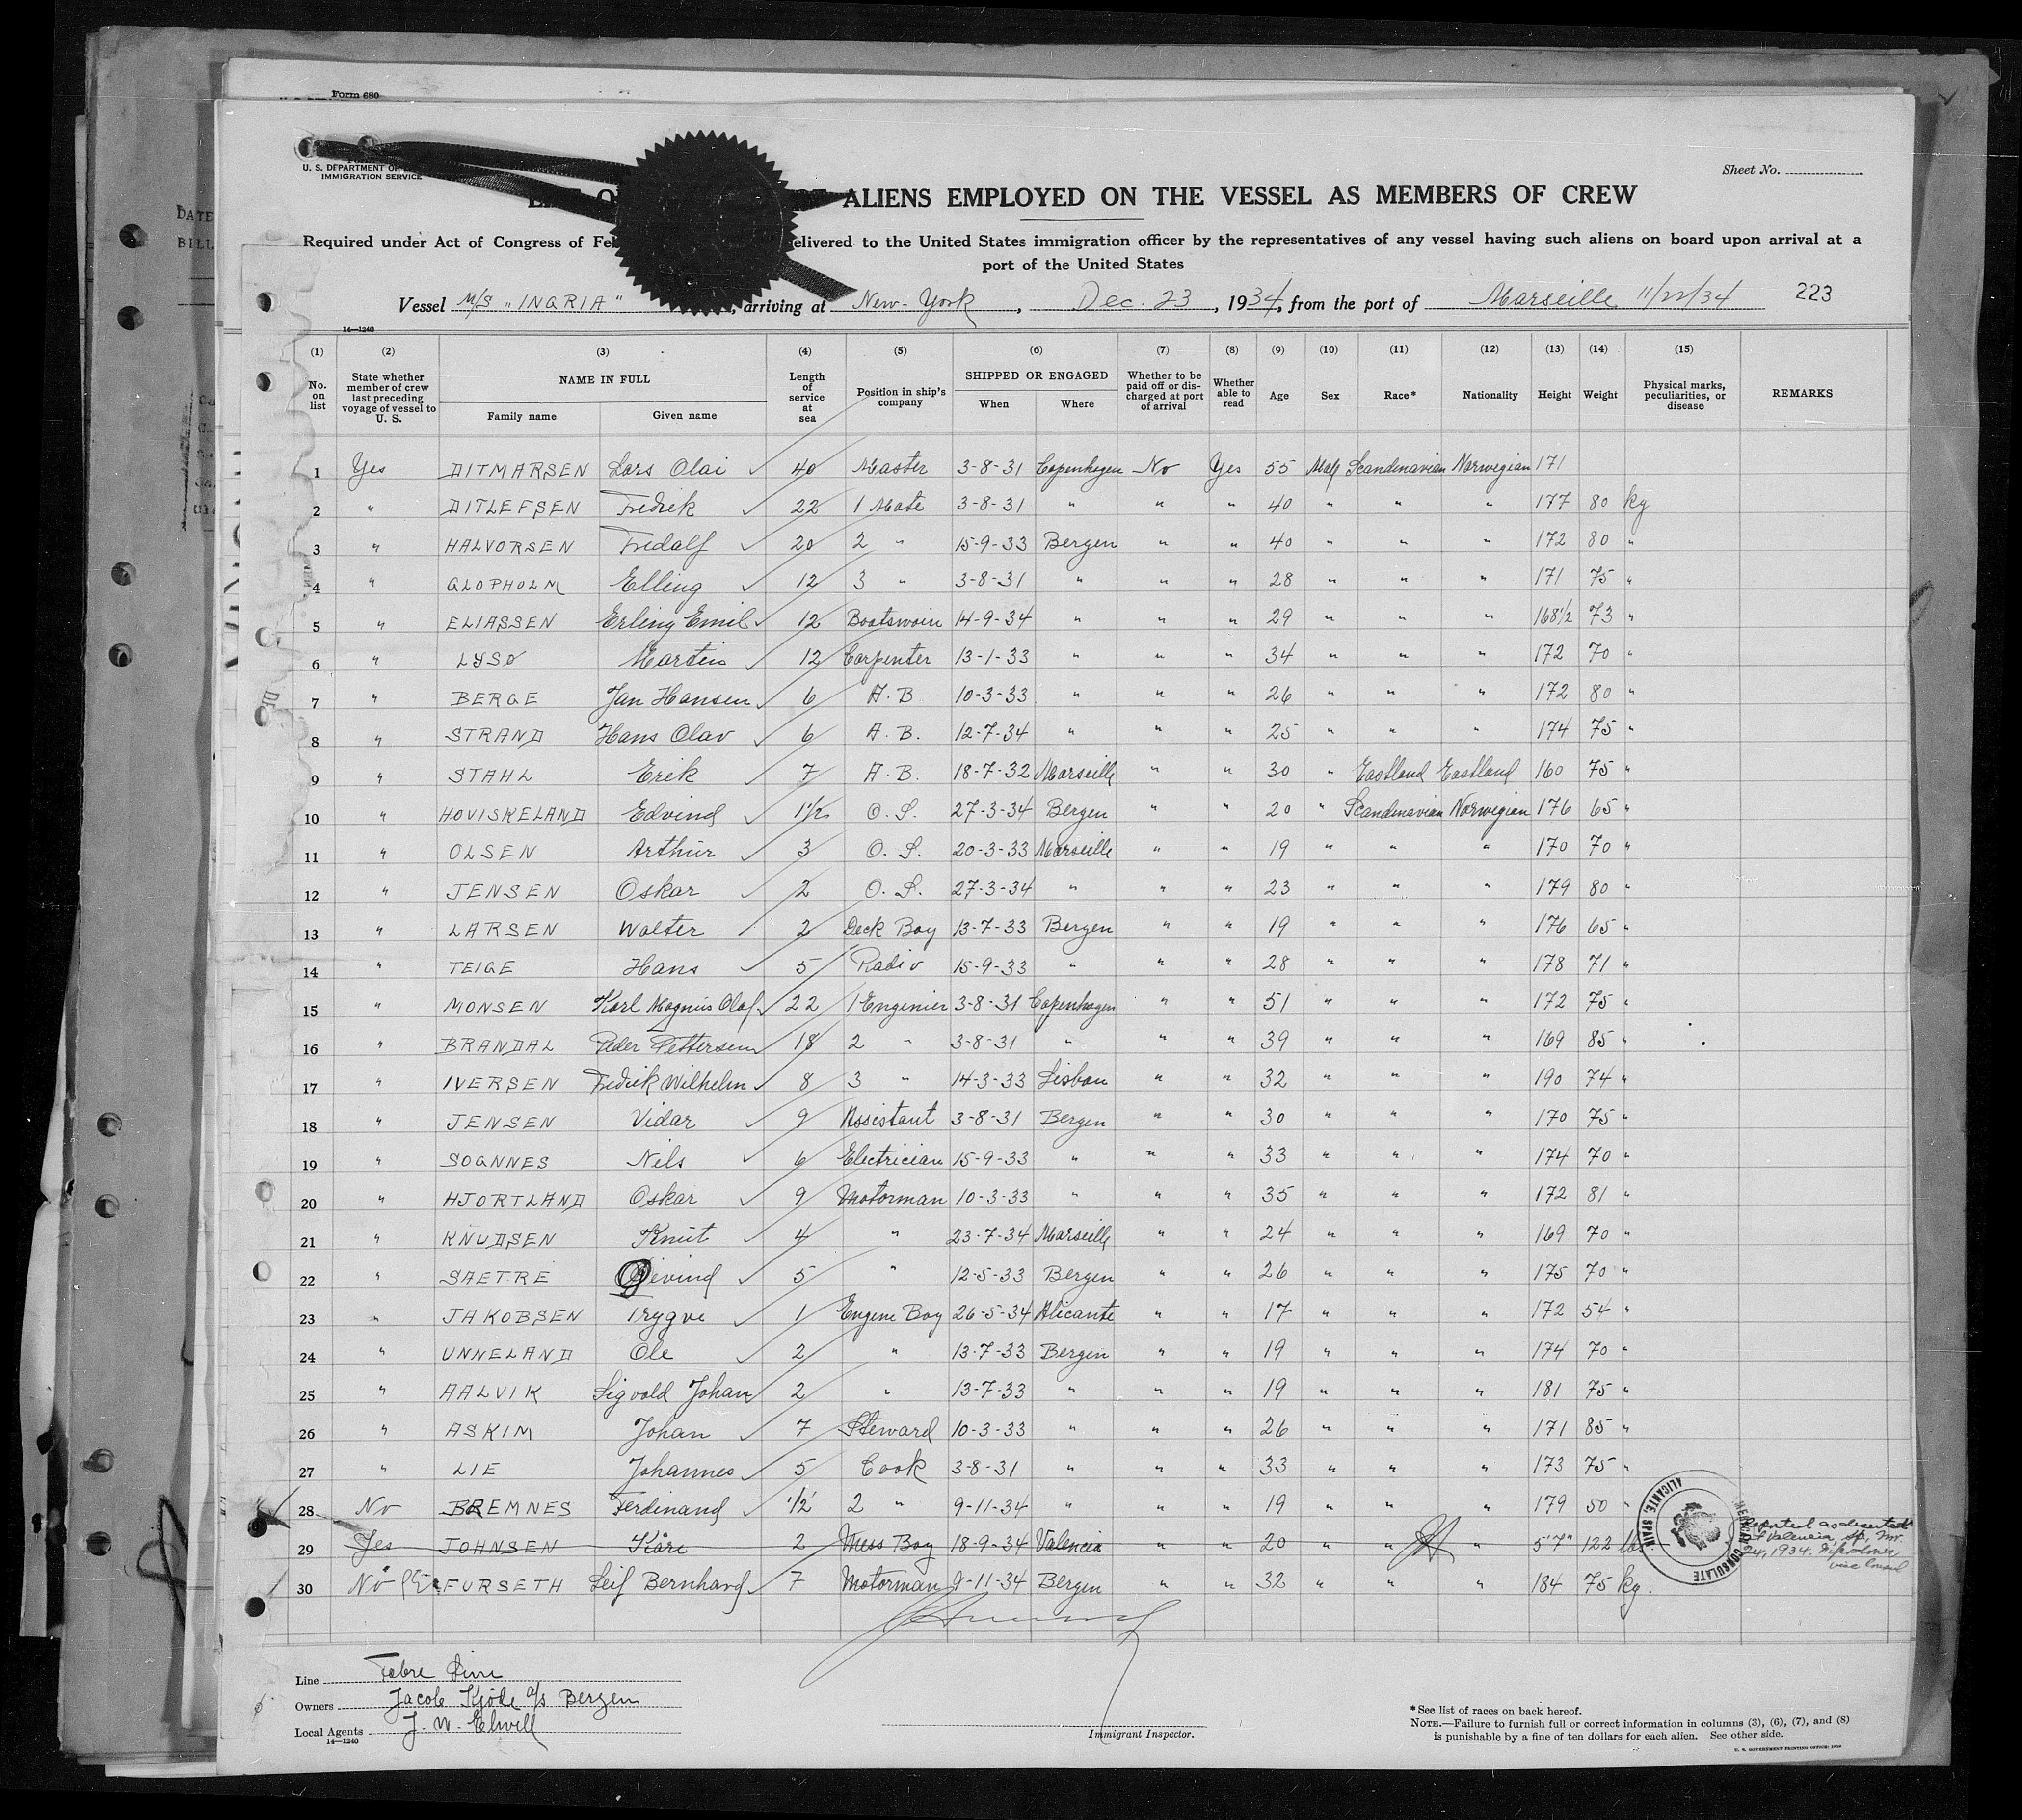 Form 680
U. S. DEPARTMENT OF
IMMIGRATION SERVICE
Sheet No.
ALIENS EMPLOYED ON THE VESSEL AS MEMBERS OF CREW
Required under Act of Congress of Feb elivered to the United States immigration officer by the representatives of any vessel having such aliens on board upon arrival at a
port of the United States
Vessel M/S "INGRIA", arriving at New-York, Dec. 23, 1934, from the port of Marseille 11/22/34 223
14—1240
(1) (2) (3) (4) (5) (6) (7) (8) (9) (10) (11) (12) (13) (14) (15)
No. on list | State whether member of crew last preceding voyage of vessel to U. S. | NAME IN FULL Family name Given name | Length of service at sea | Position in ship's company | SHIPPED OR ENGAGED When Where | Whether to be paid off or discharged at port of arrival | Whether able to read | Age | Sex | Race* | Nationality | Height | Weight | Physical marks, peculiarities, or disease | REMARKS
1 Yes DITMARSEN Lars Olai 40 Master 3-8-31 Copenhagen No Yes 55 Male Scandinavian Norwegian 171
2 " DITLEFSEN Fredrik 22 1 Mate 3-8-31 " " " 40 " " " 177 80 kg
3 " HALVORSEN Fredalf 20 2 " 15-9-33 Bergen " " 40 " " " 172 80 "
4 " GLOPHOLM Elling 12 3 " 3-8-31 " " " 28 " " " 171 75 "
5 " ELIASSEN Erling Emil 12 Boatswain 14-9-34 " " " 29 " " " 168 1/2 73 "
6 " LYSØ Martin 12 Carpenter 13-1-33 " " " 34 " " " 172 70 "
7 " BERGE Jan Hansen 6 A.B 10-3-33 " " " 26 " " " 172 80 "
8 " STRAND Hans Olav 6 A.B. 12-7-34 " " " 25 " " " 174 75 "
9 " STAHL Erik 7 A.B. 18-7-32 Marseille " " 30 " Eastland Eastland 160 75 "
10 " HOVISKELAND Edvind 1 1/2 O.S. 27-3-34 Bergen " " 20 " Scandinavian Norwegian 176 65 "
11 " OLSEN Arthur 3 O.S. 20-3-33 Marseille " " 19 " " " 170 70 "
12 " JENSEN Oskar 2 O.S. 27-3-34 " " " 23 " " " 179 80 "
13 " LARSEN Walter 2 Deck Boy 13-7-33 Bergen " " 19 " " " 176 65 "
14 " TEIGE Hans 5 Radio 15-9-33 " " " 28 " " " 178 71 "
15 " MONSEN Karl Magnus Olaf 22 1 Enginier 3-8-31 Copenhagen " " 51 " " " 172 75 "
16 " BRANDAL Peder Pettersen 18 2 " 3-8-31 " " " 39 " " " 169 85 "
17 " IVERSEN Fredrik Wilhelm 8 3 " 14-3-33 Lisbon " " 32 " " " 190 74 "
18 " JENSEN Vidar 9 Assistant 3-8-31 Bergen " " 30 " " " 170 75 "
19 " SOGNNES Nils 6 Electrician 15-9-33 " " " 33 " " " 174 70 "
20 " HJORTLAND Oskar 9 Motorman 10-3-33 " " " 35 " " " 172 81 "
21 " KNUDSEN Knut 4 " 23-7-34 Marseille " " 24 " " " 169 70 "
22 " SAETRE Oivind 5 " 12-5-33 Bergen " " 26 " " " 175 70 "
23 " JAKOBSEN Trygve 1 Engine Boy 26-5-34 Alicante " " 17 " " " 172 54 "
24 " UNNELAND Ole 2 " 13-7-33 Bergen " " 19 " " " 174 70 "
25 " AALVIK Sigvald Johan 2 " 13-7-33 " " " 19 " " " 181 75 "
26 " ASKIM Johan 7 Steward 10-3-33 " " " 26 " " " 171 85 "
27 " LIE Johannes 5 Cook 3-8-31 " " " 33 " " " 173 75 "
28 No BREMNES Ferdinand 1/2 2 " 9-11-34 " " " 19 " " " 179 50 "
29 Yes JOHNSEN Kåre 2 Mess Boy 18-9-34 Valencia " " 20 " " " 5'7" 122 lbs. Reported as deserted at Valencia, Sp,
24, 1934. vice Consul
30 No FURSETH Leif Bernhard 7 Motorman 9-11-34 Bergen " " 32 " " " 184 75 kg.
AMERICAN CONSULATE ALICANTE, SPAIN
Line Fabre Line
Owners Jacob Kjøde A/s Bergen
Local Agents J. W. Elwell
14—1240
Immigrant Inspector.
*See list of races on back hereof.
NOTE.—Failure to furnish full or correct information in columns (3), (6), (7), and (8)
is punishable by a fine of ten dollars for each alien. See other side.